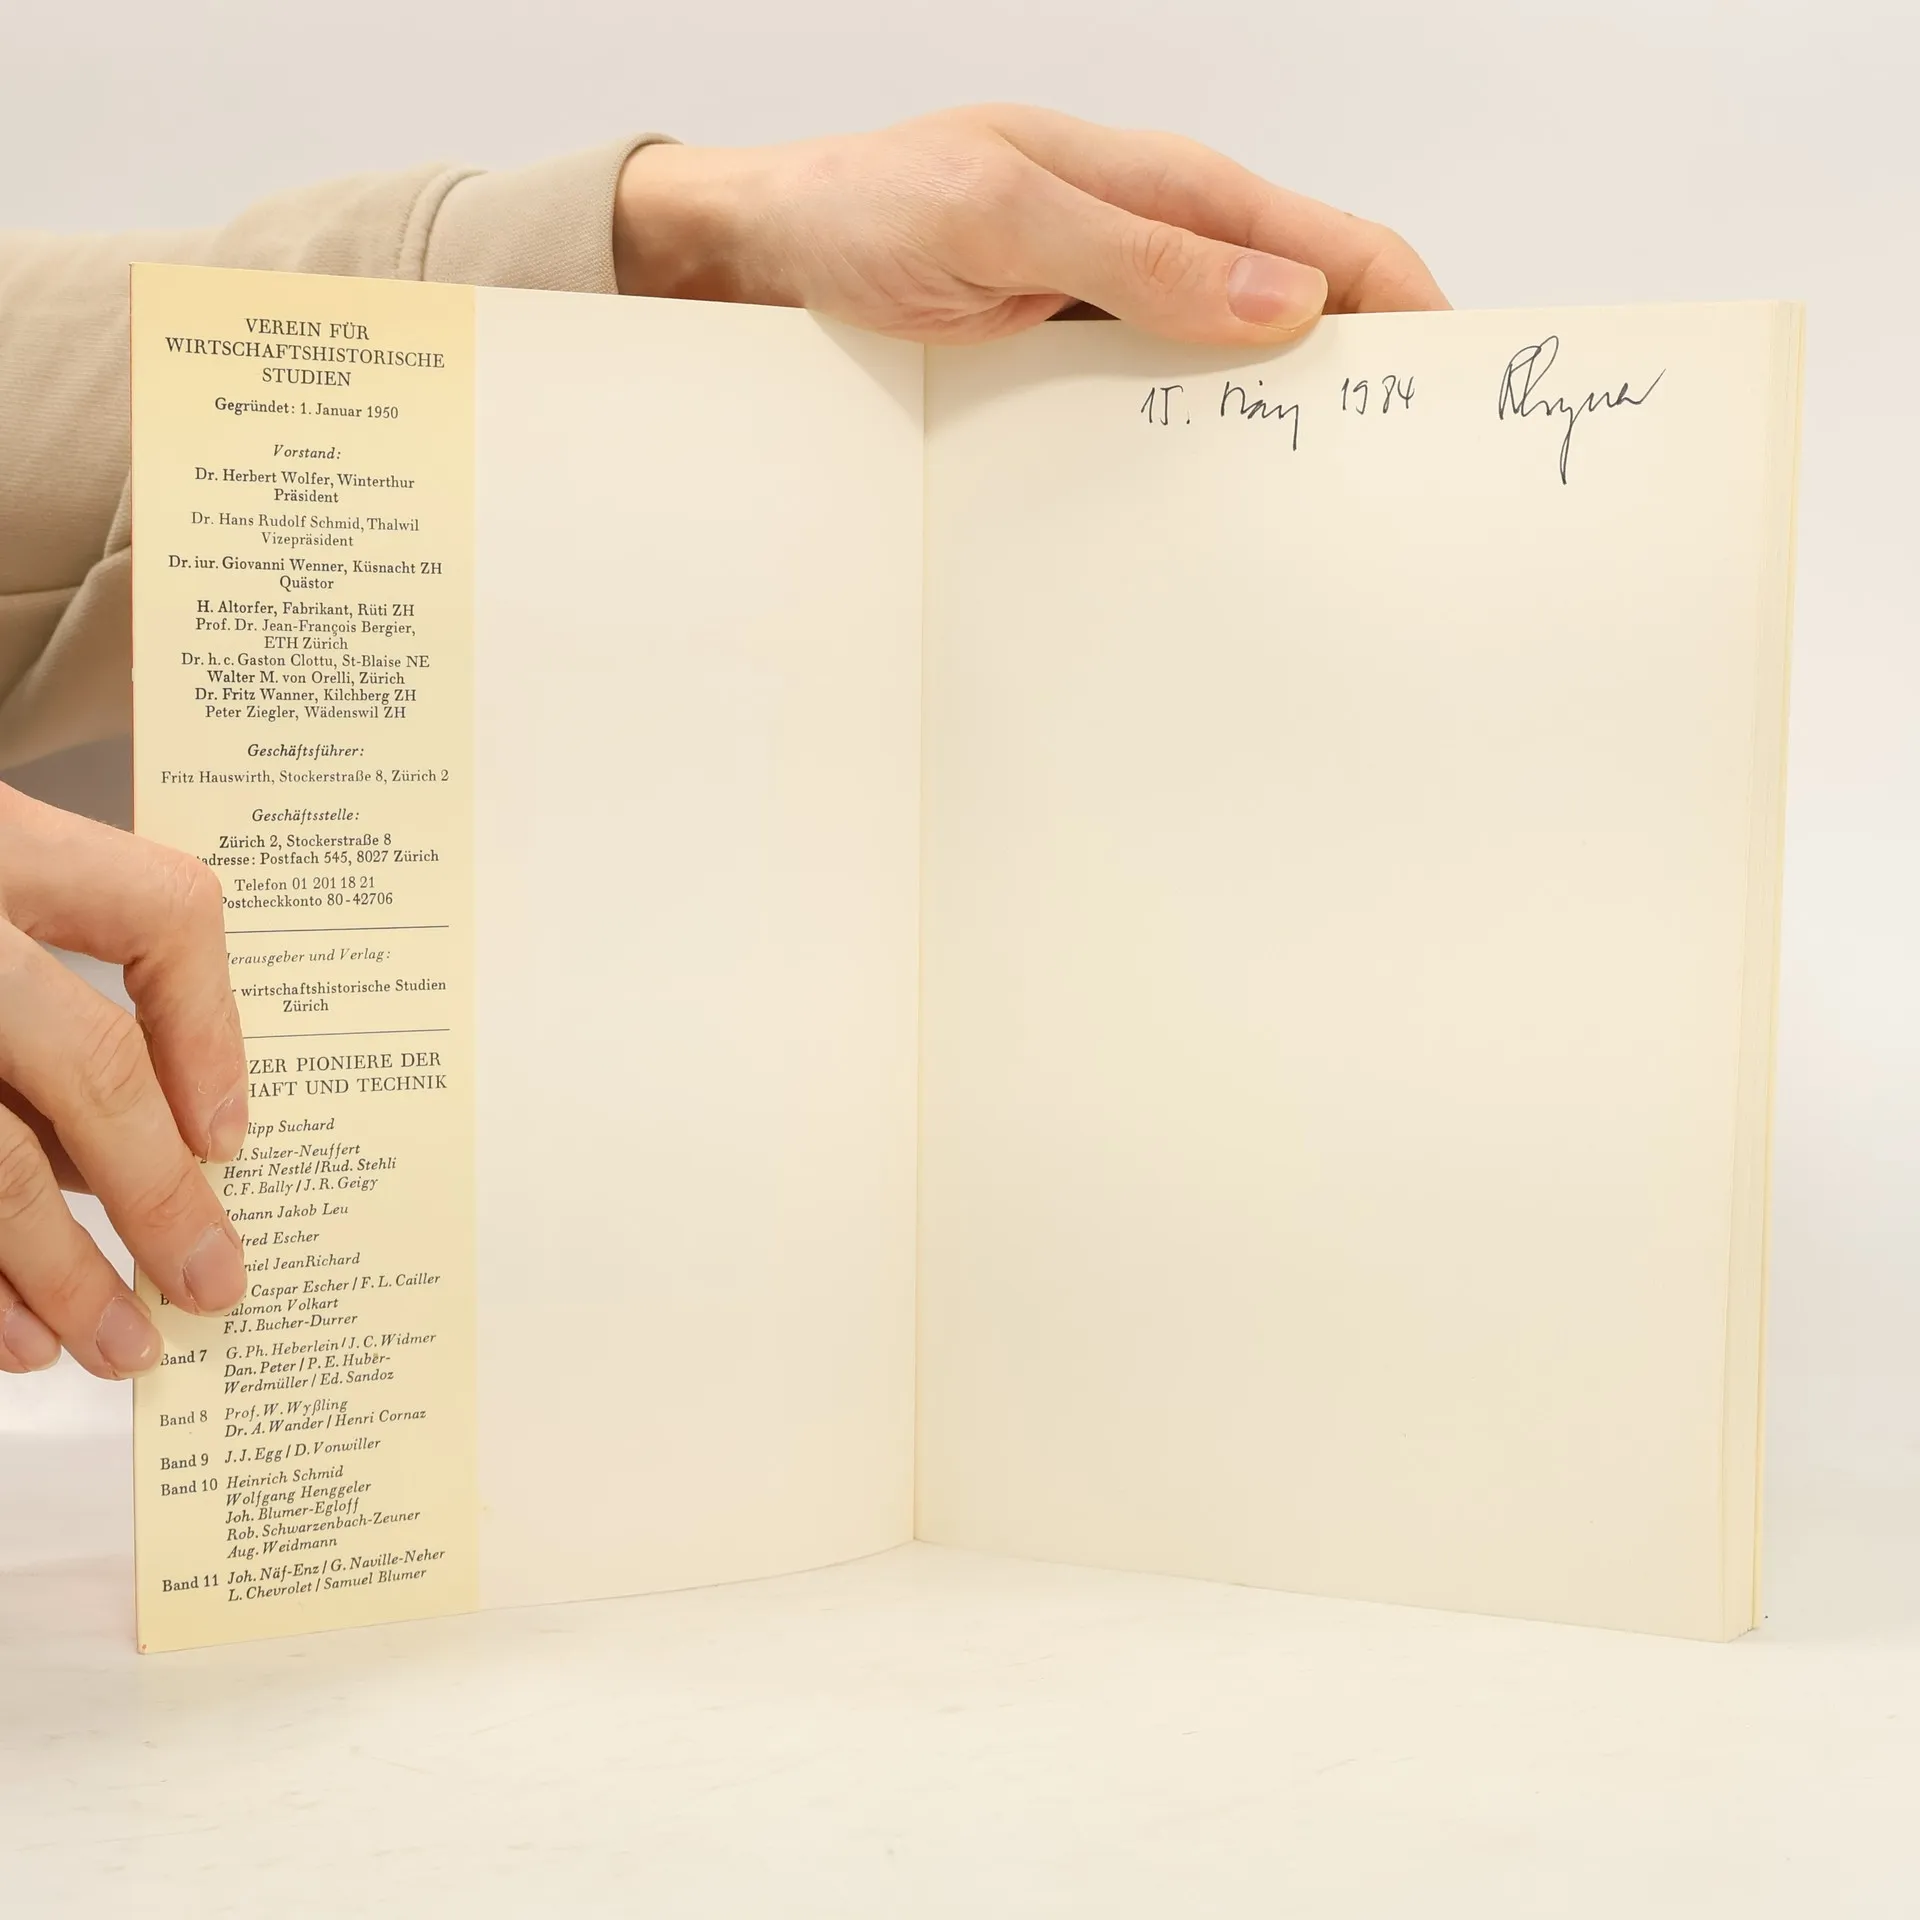 VEREIN FÜR
WIRTSCHAFTSHISTORISCHE
STUDIEN
Gegründet: 1. Januar 1950
Vorstand:
Dr. Herbert Wolfer, Winterthur
Präsident
Dr. Hans Rudolf Schmid, Thalwil
Vizepräsident
Dr. iur. Giovanni Wenner, Küsnacht ZH
Quästor
H. Altorfer, Fabrikant, Rüti ZH
Prof. Dr. Jean-François Bergier,
ETH Zürich
Dr. h. c. Gaston Clottu, St-Blaise NE
Walter M. von Orelli, Zürich
Dr. Fritz Wanner, Kilchberg ZH
Peter Ziegler, Wädenswil ZH
Geschäftsführer:
Fritz Hauswirth, Stockerstraße 8, Zürich 2
Geschäftsstelle:
Zürich 2, Stockerstraße 8
adresse: Postfach 545, 8027 Zürich
Telefon 01 201 18 21
Postcheckkonto 80-42706
erausgeber und Verlag:
r wirtschaftshistorische Studien
Zürich
ZER PIONIERE DER
HAFT UND TECHNIK
lipp Suchard
J. Sulzer-Neuffert
Henri Nestlé / Rud. Stehli
C. F. Bally / J. R. Geigy
Johann Jakob Leu
fred Escher
niel JeanRichard
Caspar Escher / F. L. Cailler
alomon Volkart
F. J. Bucher-Durrer
Band 7 G. Ph. Heberlein / J. C. Widmer
Dan. Peter / P. E. Huber-
Werdmüller / Ed. Sandoz
Band 8 Prof. W. Wyßling
Dr. A. Wander / Henri Cornaz
Band 9 J. J. Egg / D. Vonwiller
Band 10 Heinrich Schmid
Wolfgang Henggeler
Joh. Blumer-Egloff
Rob. Schwarzenbach-Zeuner
Aug. Weidmann
Band 11 Joh. Näf-Enz / G. Naville-Neher
L. Chevrolet / Samuel Blumer
15. 1984